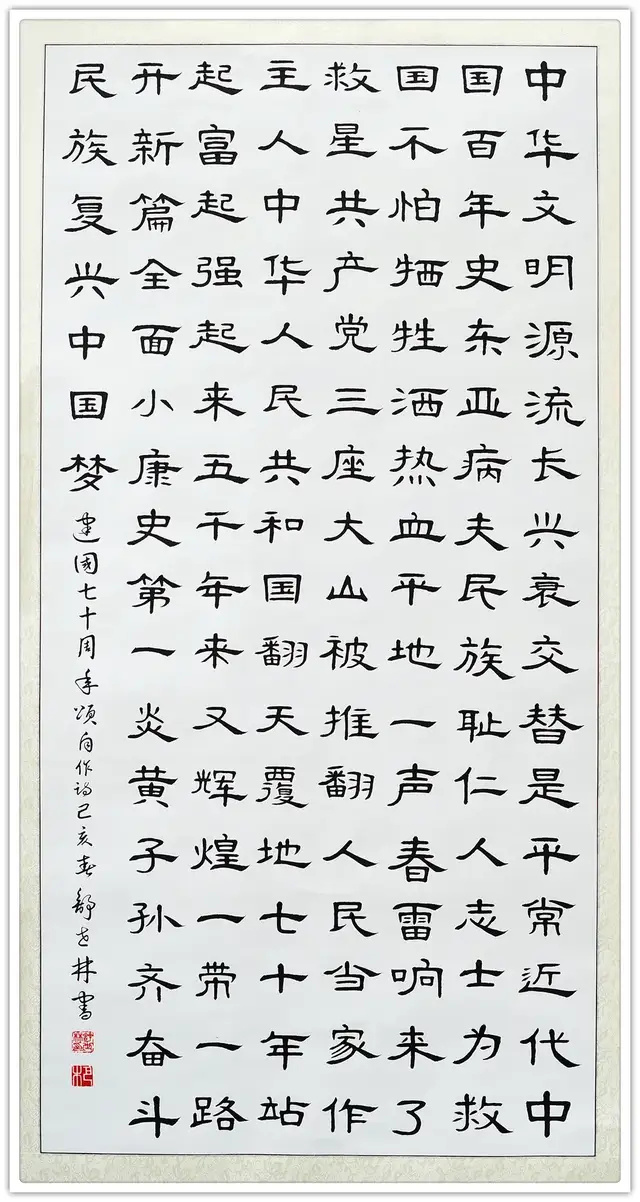 中华文明源流长兴衰交替是平常近代中
国百年史东亚病夫民族耻仁人志士为救
国不怕牺牲洒热血平地一声春雷响来了
救星共产党三座大山被推翻人民当家作
主人中华人民共和国翻天覆地七十年站
起富起强起来五千年来又辉煌一带一路
开新篇全面小康史第一炎黄子孙齐奋斗
民族复兴中国梦
建國七十周年颂自作诗己亥春舒世林書